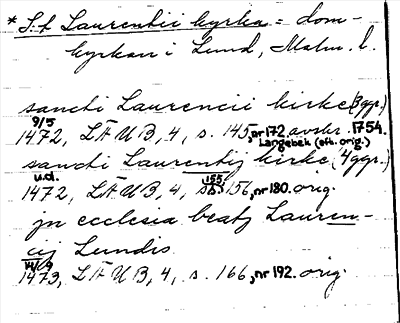 * S:t Laurentii kyrka = dom-
kyrkan i Lund, Malm. l.
sancti Laurencii kirke (3 ggr.)
9/5
1472, LÄUB, 4, s. 145, nr 172 avskr. 1754.
Langebek (eft. orig.)
sancti Laurentij kirke (4 ggr.)
u.d. 155
1472, LÄUB, 4, 156, nr 180. orig.
jn ecclesia beatj Lauren-
cij Lundis
14/9
1473, LÄUB, 4, s. 166, nr 192. orig.